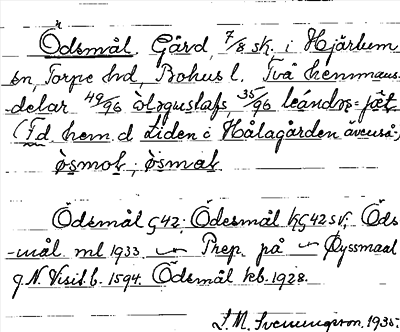 Ödsmål. Gård, 7/8 sk. i Hjärtum
sn, Torpe hd, Bohus l. Två hemmans-
delar 49/96 òloguslafs, 35/96 leándrs=jæt
(Td hem. d. Liden i Hålagården även så;
òsmoł; òsmał
Ödsmål G42; Ödesmål KG42 sv; Öds
-mål ml 1933 — Prep. på — Øyssmaal
g N. Visit. b. 1594. Ödsmål kb. 1928.
S. M. Svenungsson. 1935.